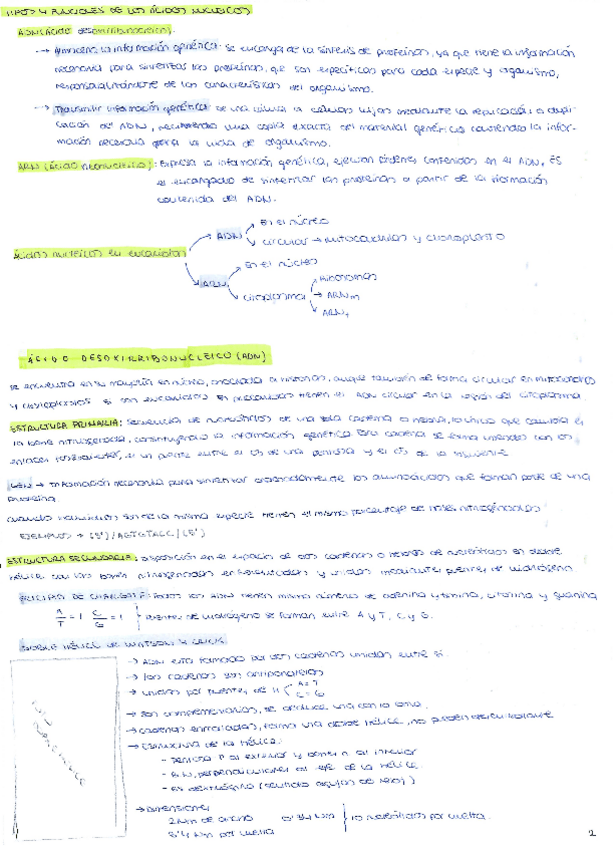 TIPOS Y FUNCIONES DE LOS ÁCIDOS NUCLEICOS
ADN (ÁCIDO desoxirribonucleico).
→ Almacena la información genética: se encarga de la síntesis de proteínas, ya que tiene la información
necesaria para sintetizar las proteínas, que son específicas para cada especie y organismo,
de las características del organismo.
→ Transmitir información genética: de una célula a células hijas mediante la replicación o dupli-
cación del ADN, una copia exacta del material genético la infor-
mación necesaria para la vida de organismo.
ARN (ÁCIDO RIBONUCLEICO): Expresa la información genética, ejecutan órdenes contenidas en el ADN, ES
el encargado de sintetizar las proteínas a partir de la información
contenida del ADN.
Ácidos nucleicos en eucariotas
ADN
En el núcleo
circular → mitocondrias y cloroplasto
ARN
En el núcleo
citoplasma
Ribosomas
ARNm
ARNt
ÁCIDO DESOXIRRIBONUCLEICO (ADN)
Se encuentra en su mayoría en núcleo, asociada a histonas, aunque también de forma circular en mitocondrias
y cloroplastos si son eucariotas. En procariotas tienen el ADN circular en la región del citoplasma
ESTRUCTURA PRIMARIA: Secuencia de nucleótidos de una sola cadena o hebra, lo único que cambia es
la base nitrogenada, constituyendo la información genética. Esta cadena se forma uniendo con los
enlaces fosfodiéster, es un puente entre el de una pentosa y el de la siguiente
→ Información necesaria para sintetizar ordenadamente los aminoácidos que forman parte de una
proteína.
Cuando individuos son de la misma especie tienen el mismo porcentaje de bases nitrogenadas
EJEMPLOS →
ESTRUCTURA SECUNDARIA: disposición en el espacio de dos cadenas o hebras de nucleótidos en doble
hélice con las bases nitrogenadas enfrentadas y unidas mediante puentes de hidrógeno
PRINCIPIO DE CHARGAFF: todos los ADN tienen mismo número de adenina y timina, citosina y guanina
A/T = 1 C/G = 1 puentes de hidrógeno se forman entre A y T, C y G.
DOBLE HÉLICE DE WATSON Y CRICK
→ ADN está formado por dos cadenas unidas entre sí
→ las cadenas son antiparalelas
→ unidas por puentes de H A=T
C≡G
→ Son complementarias, se una con la otra.
→ cadenas enrolladas, forma una doble hélice, no pueden
→ Estructura de la hélice:
- Pentosa P al exterior y bases N al interior
- B.N. perpendiculares al eje de la hélice
- Es dextrógiro (sentido agujas del reloj)
→ Dimensiones
2 Nm de ancho
3'4 Nm por vuelta
10 nucleótidos por vuelta.
2